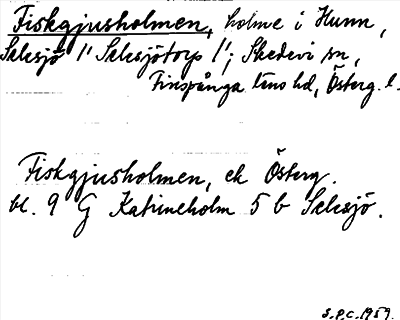 Fiskgjusholmen, holme i Hunn,
Selesjö 1' Selesjötorp 1'; Skedevi sn,
Finspånga läns hd, Österg. l.
Fiskgjusholmen, ek Österg.
bl. 9 G Katrineholm 5 b Selesjö.
S.P.C. 1959.